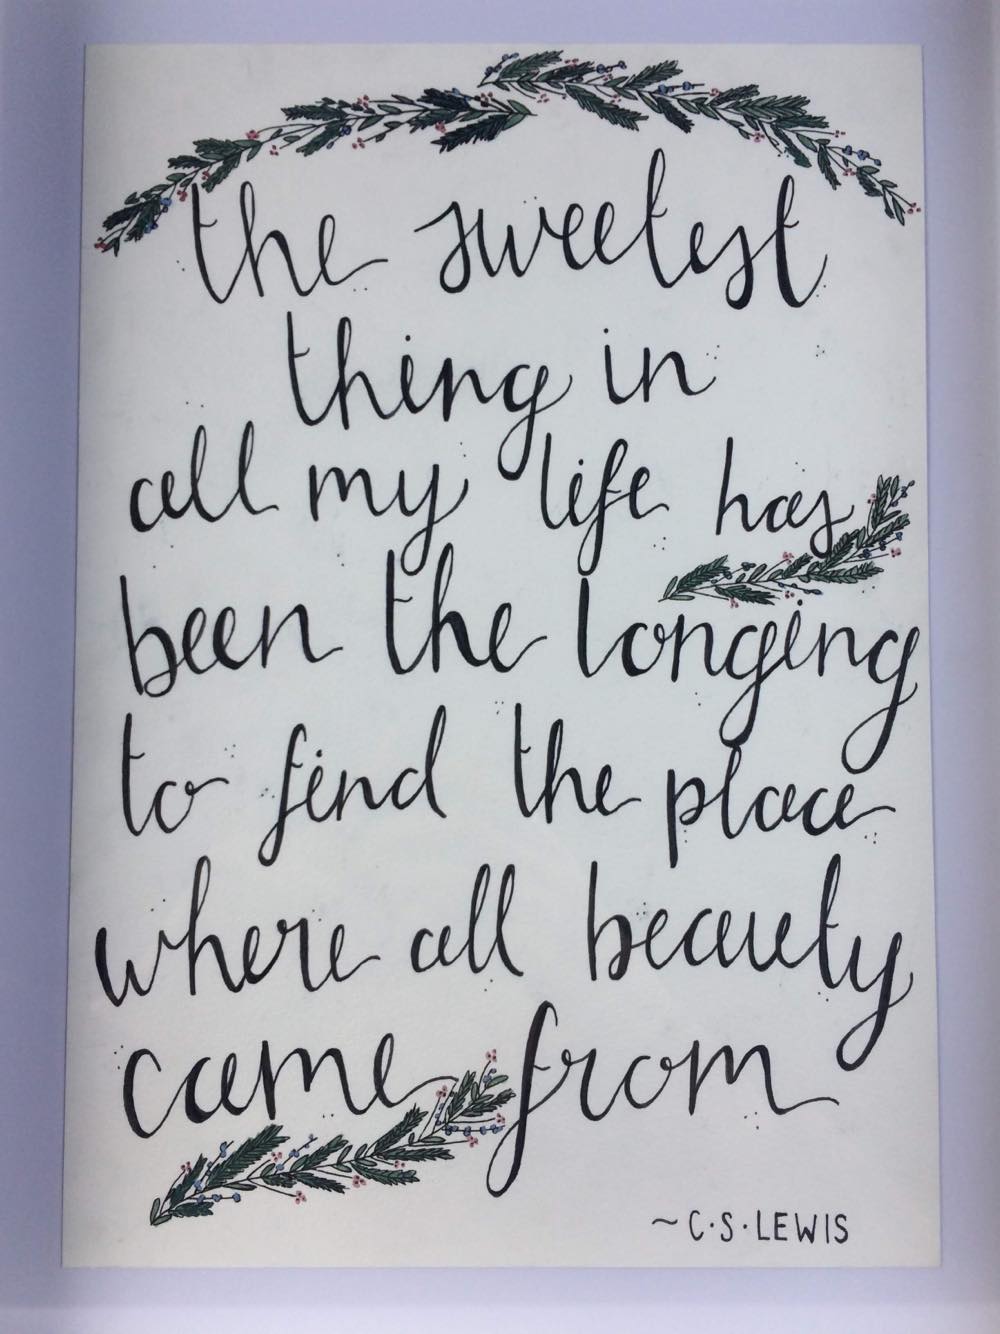 the sweetest
thing in
all my life has
been the longing
to find the place
where all beauty
came from
~C·S·LEWIS